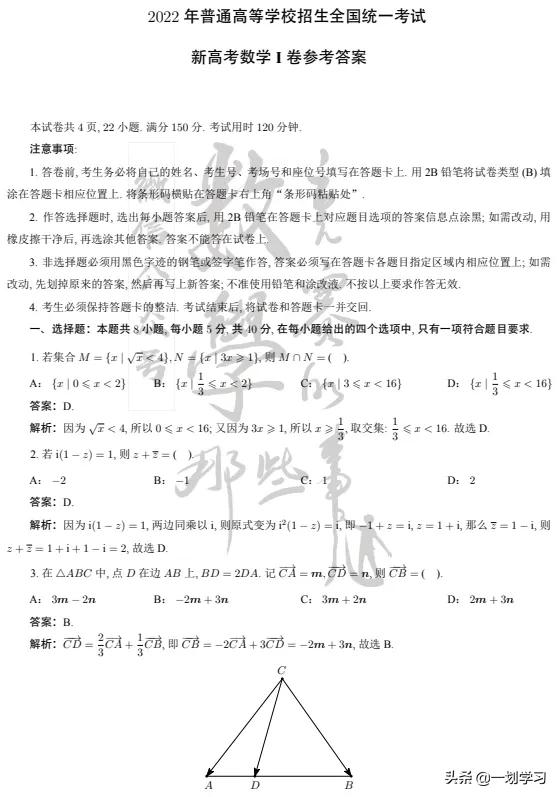 2022 年普通高等学校招生全国统一考试
新高考数学 I 卷参考答案
本试卷共 4 页, 22 小题. 满分 150 分. 考试用时 120 分钟.
注意事项:
1. 答卷前, 考生务必将自己的姓名、考生号、考场号和座位号填写在答题卡上. 用 2B 铅笔将试卷类型 (B) 填
涂在答题卡相应位置上. 将条形码横贴在答题卡右上角 “条形码粘贴处” .
2. 作答选择题时, 选出每小题答案后, 用 2B 铅笔在答题卡上对应题目选项的答案信息点涂黑; 如需改动, 用
橡皮擦干净后, 再选涂其他答案. 答案不能答在试卷上.
3. 非选择题必须用黑色字迹的钢笔或签字笔作答, 答案必须写在答题卡各题目指定区域内相应位置上; 如需
改动, 先划掉原来的答案, 然后再写上新答案; 不准使用铅笔和涂改液. 不按以上要求作答无效.
4. 考生必须保持答题卡的整洁. 考试结束后, 将试卷和答题卡一并交回.
一、选择题：本题共 8 小题, 每小题 5 分, 共 40 分, 在每小题给出的四个选项中, 只有一项符合题目要求.
1. 若集合 M = {x | √x < 4}, N = {x | 3x ⩾ 1}, 则 M ∩ N = ( ).
A: {x | 0 ⩽ x < 2} B: {x | 1/3 ⩽ x < 2} C: {x | 3 ⩽ x < 16} D: {x | 1/3 ⩽ x < 16}
答案：D.
解析：因为 √x < 4, 所以 0 ⩽ x < 16; 又因为 3x ⩾ 1, 所以 x ⩾ 1/3, 取交集: 1/3 ⩽ x < 16. 故选 D.
2. 若 i(1 − z) = 1, 则 z + z̅ = ( ).
A: −2 B: −1 C: 1 D: 2
答案：D.
解析：因为 i(1 − z) = 1, 两边同乘以 i, 则原式变为 i²(1 − z) = i, 即 −1 + z = i, z = 1 + i, 那么 z̅ = 1 − i, 则
z + z̅ = 1 + i + 1 − i = 2, 故选 D.
3. 在 △ABC 中, 点 D 在边 AB 上, BD = 2DA. 记 CA⃗ = m, CD⃗ = n, 则 CB⃗ = ( ).
A: 3m − 2n B: −2m + 3n C: 3m + 2n D: 2m + 3n
答案：B.
解析：CD⃗ = 2/3 CA⃗ + 1/3 CB⃗, 即 CB⃗ = −2CA⃗ + 3CD⃗ = −2m + 3n, 故选 B.
C
A D B
头条 @一划学习